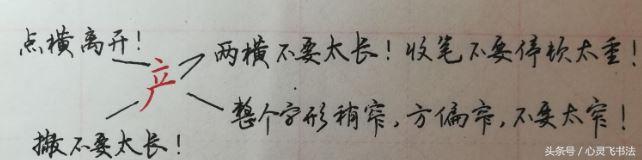 点横离开!
产
两横不要太长!收笔不要停顿太重!
整个字形稍窄,方偏窄,不要太窄!
撇不要太长!
头条号/心灵飞书法